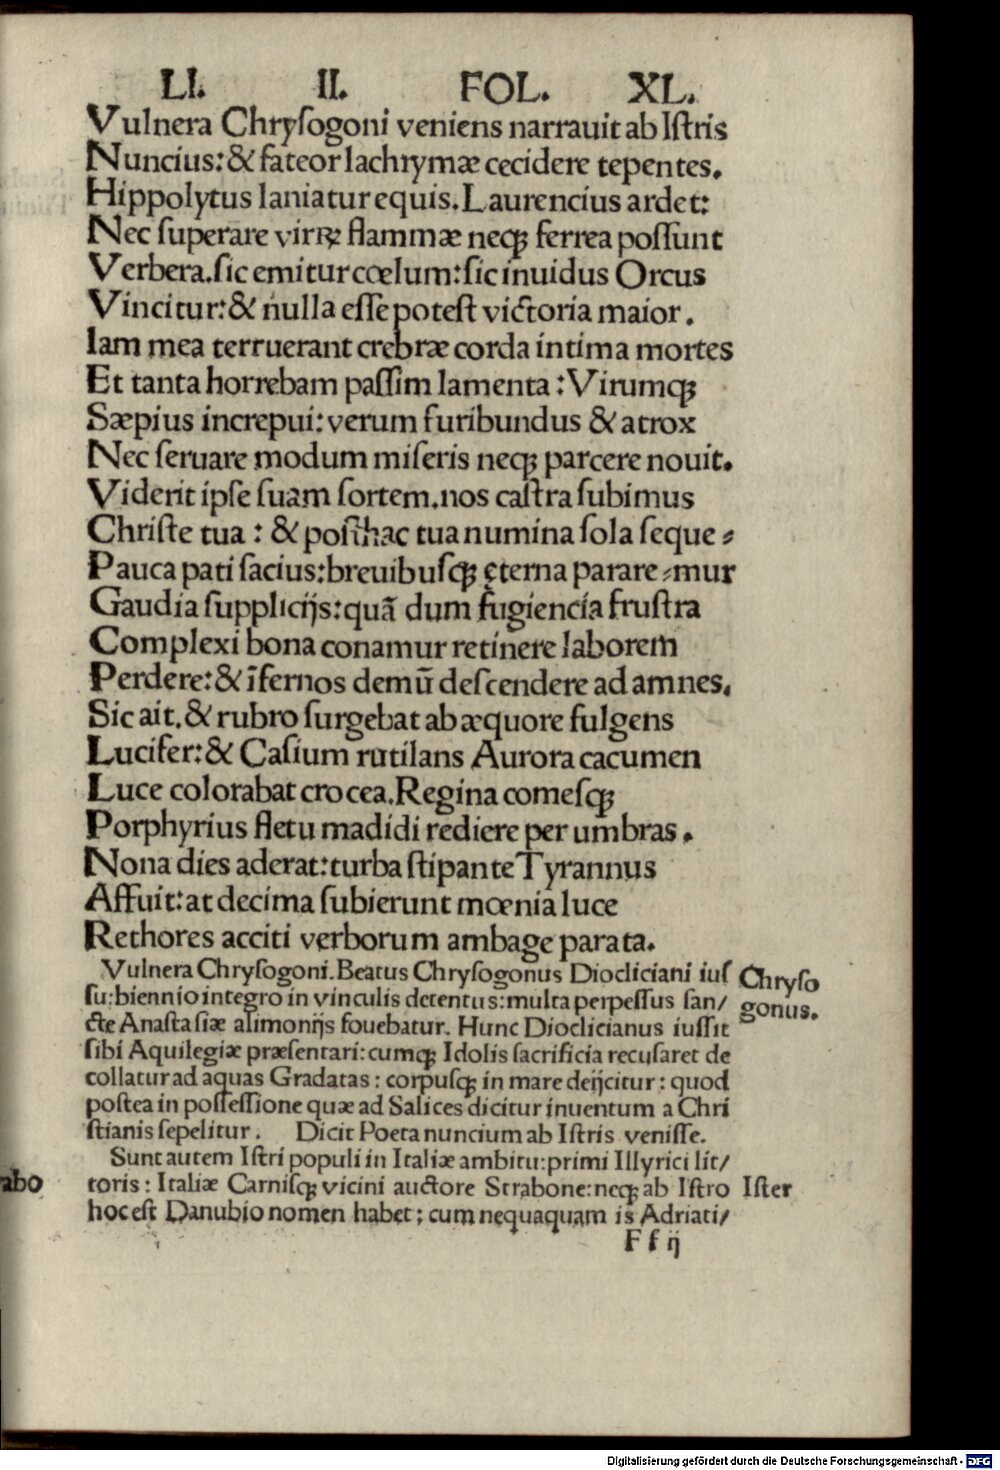 LI. II. FOL. XL.
Vulnera Chryſogoni veniens narrauit ab Iſtris
Nuncius: & fateor lachrymæ cecidere tepentes.
Hippolytus laniatur equis. Laurencius ardet:
Nec ſuperare virꝝ flammæ neqꝫ ferrea poſſunt
Verbera. ſic emitur cœlum: ſic inuidus Orcus
Vincitur: & nulla eſſe poteſt victoria maior.
Iam mea terruerant crebræ corda intima mortes
Et tanta horrebam paſſim lamenta: Virumqꝫ
Sæpius increpui: verum furibundus & atrox
Nec ſeruare modum miſeris neqꝫ parcere nouit.
Viderit ipſe ſuam ſortem. nos caſtra ſubimus
Chriſte tua: & poſthac tua numina ſola ſeque⸗
Pauca pati ſacius: breuibuſqꝫ ęterna parare ⸗mur
Gaudia ſupplicijs: quã dum fugiencia fruſtra
Complexi bona conamur retinere laborem
Perdere: & ĩfernos demũ deſcendere ad amnes.
Sic ait. & rubro ſurgebat ab æquore fulgens
Lucifer: & Caſium rutilans Aurora cacumen
Luce colorabat crocea. Regina comeſqꝫ
Porphyrius fletu madidi rediere per umbras.
Nona dies aderat: turba ſtipante Tyrannus
Affuit: at decima ſubierunt mœnia luce
Rethores acciti verborum ambage parata.
Vulnera Chryſogoni. Beatus Chryſogonus Diocliciani iuſ
ſu: biennio integro in vinculis detentus: multa perpeſſus ſan/
ctæ Anaſtaſiæ alimonijs fouebatur. Hunc Dioclicianus iuſſit
ſibi Aquilegiæ præſentari: cumqꝫ Idolis ſacrificia recuſaret de
collatur ad aquas Gradatas: corpuſqꝫ in mare deijcitur: quod
poſtea in poſſeſſione quæ ad Salices dicitur inuentum a Chri
ſtianis ſepelitur. Dicit Poeta nuncium ab Iſtris veniſſe.
Sunt autem Iſtri populi in Italiæ ambitu: primi Illyrici lit/
toris: Italiæ Carniſqꝫ vicini auctore Strabone: neqꝫ ab Iſtro
hoc eſt Danubio nomen habet; cum nequaquam is Adriati/
F f ij
Chryſo
gonus.
Iſter
abo
Digitalisierung gefördert durch die Deutsche Forschungsgemeinschaft - DFG